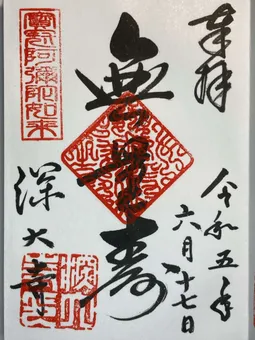 奉拝
令和五年
六月十七日
無量壽
寳冠阿彌陀如来
深大寺